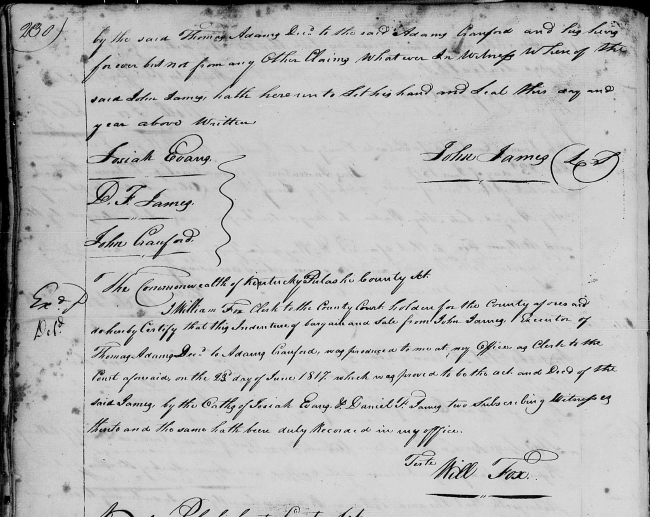 230
by the said Thomas Adams Decd. to the said Adams Crauford and his heirs
forever but not from any Other Claims Whatever In Witness Whereof the
said John James, hath here unto Set his hand and Seal this day and
year above Written
Josiah Evans
John James (LS)
D. F. James
John Crauford
The Commonwealth of Kentucky Pulaske County Sct.
Exd
Deld.
I William Fox Clerk to the County Court holden for the County aforesaid
do hereby Certify that this Indenture of bargain and Sale from John James Executor of
Thomas Adams Decd. to Adams Crauford, was produced to me at my Office as Clerk to the
Court aforesaid on the day of June 1817 which was proved to be the act and Deed of the
said James, by the Oaths of Josiah Evans & Daniel F. James two Subscribing Witnesses
thereto and the same hath been duly Recorded in my office.
Teste
Will Fox